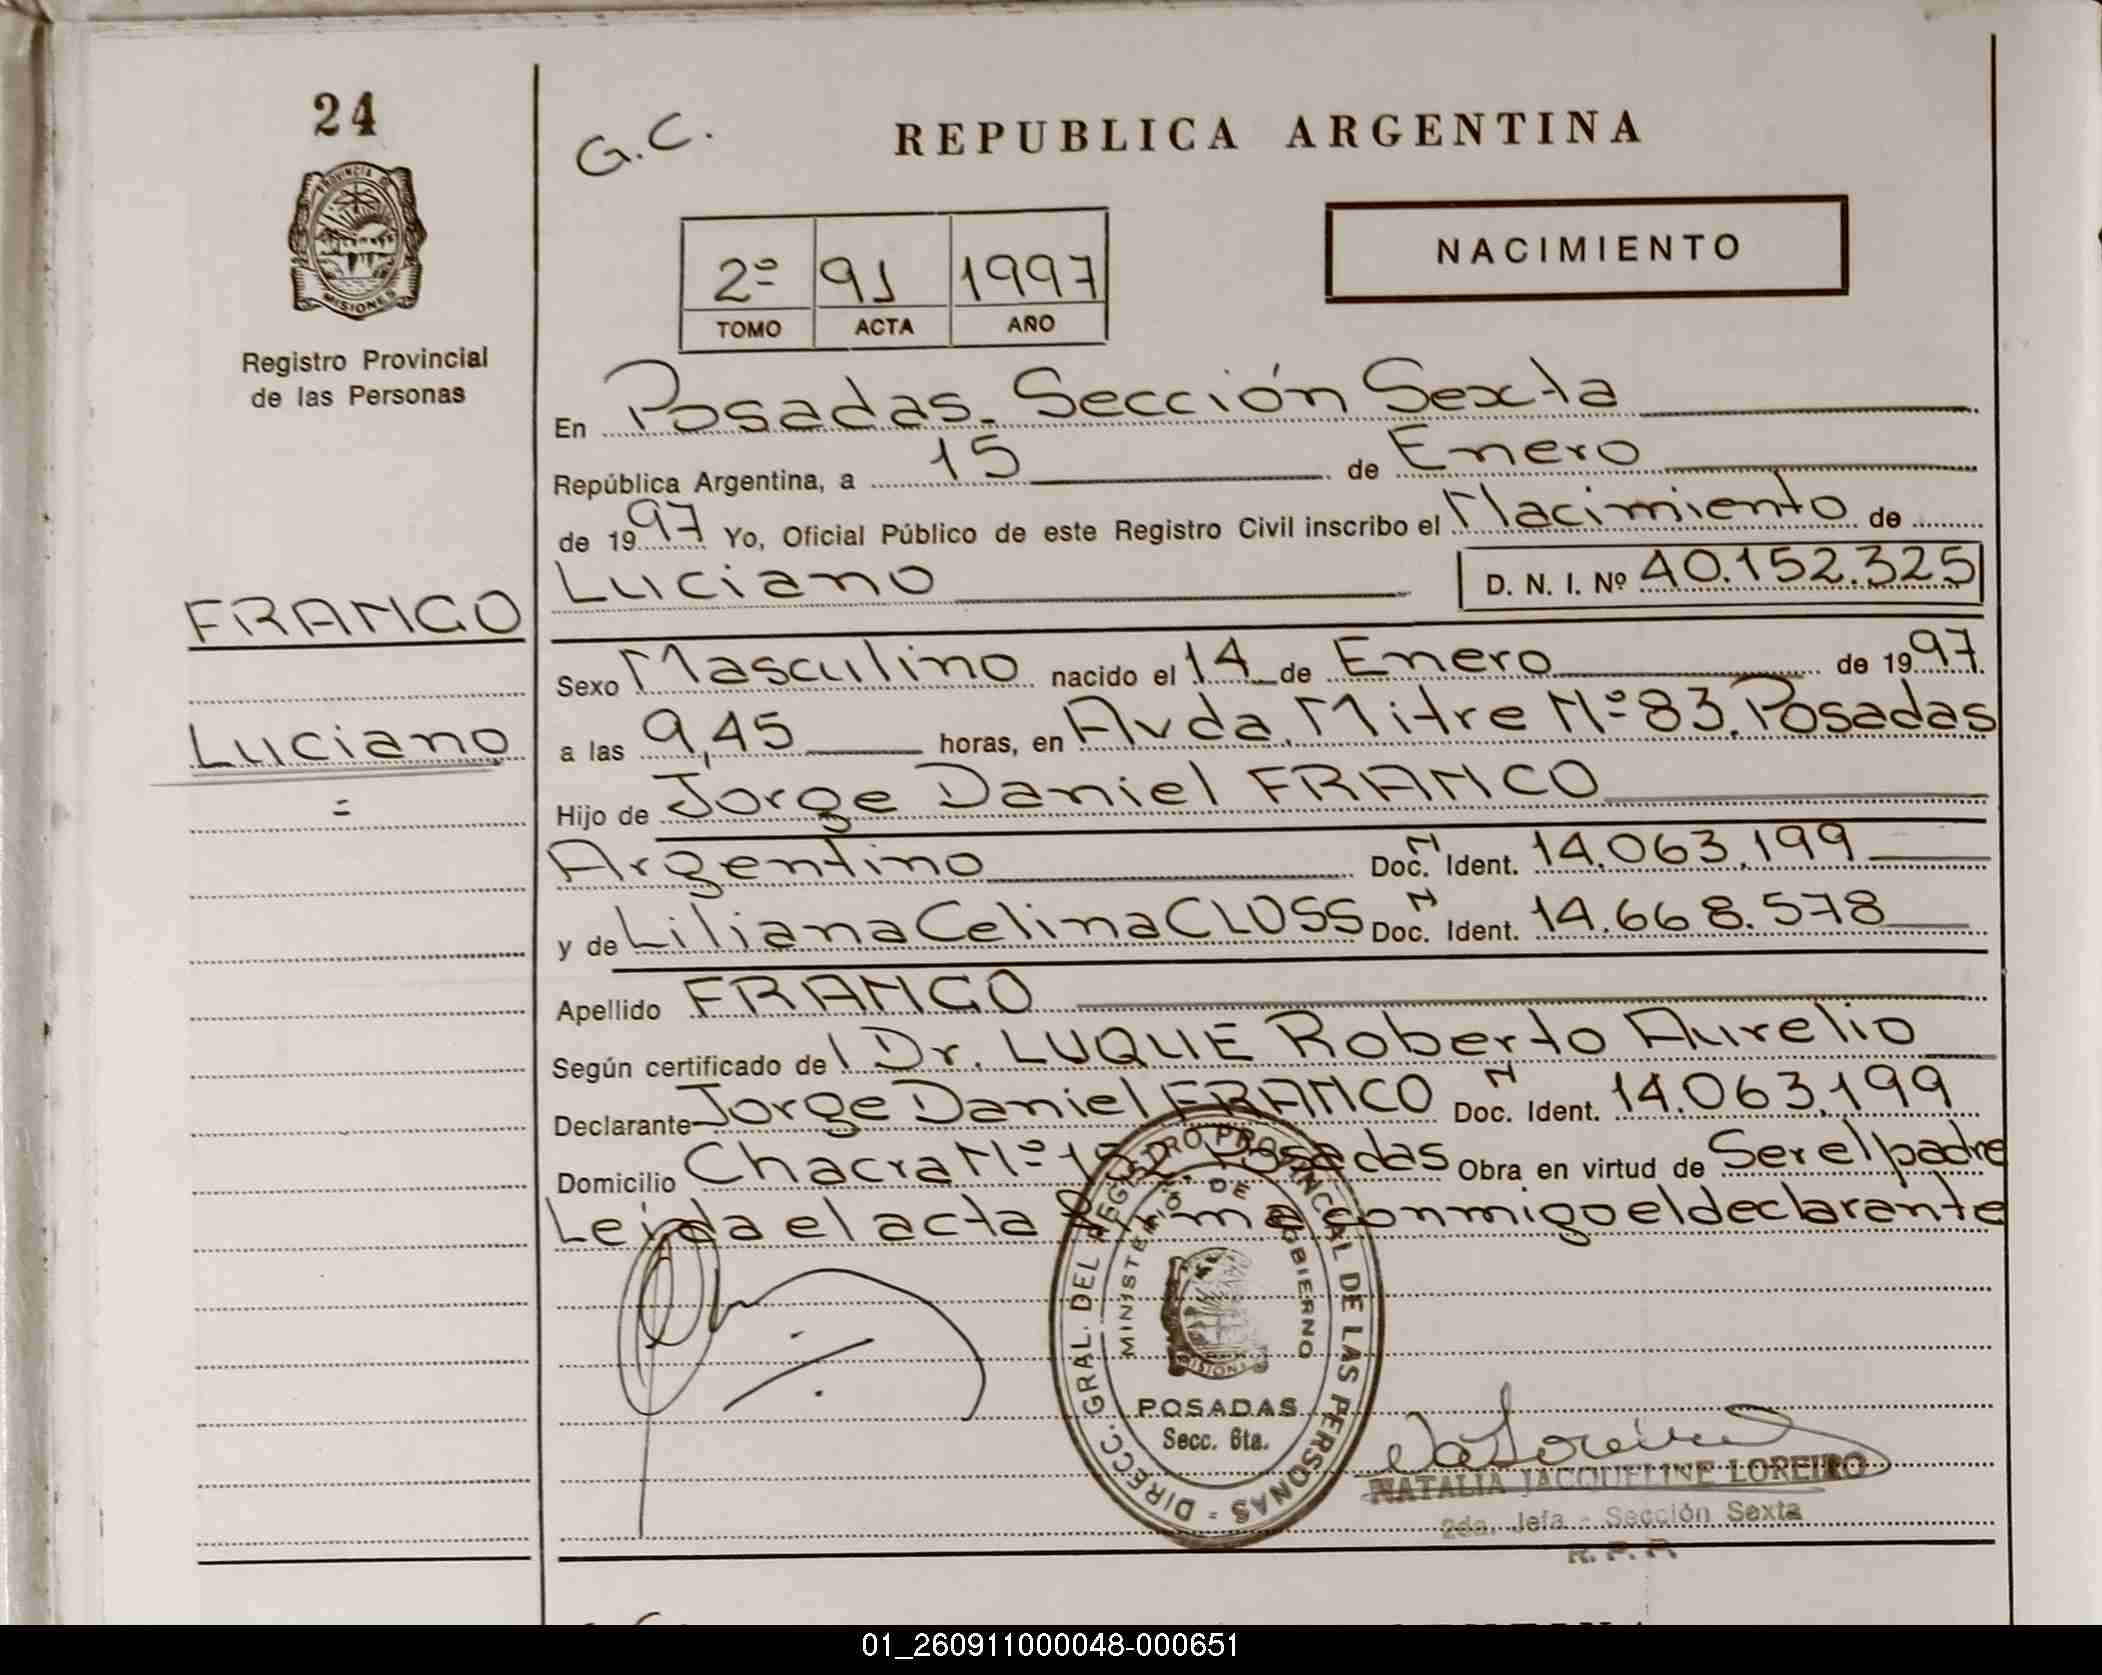 24
PROVINCIA DE
MISIONES
Registro Provincial
de las Personas
G.C.
REPUBLICA ARGENTINA
2º 91 1997
TOMO ACTA AÑO
NACIMIENTO
En Posadas. Sección Sexta
República Argentina, a 15 de Enero
de 1997 Yo, Oficial Público de este Registro Civil inscribo el Nacimiento de
Luciano D. N. I. Nº 40.152.325
FRANCO
Sexo Masculino nacido el 14 de Enero de 1997
Luciano
a las 9,45 horas, en Avda. Mitre Nº 83. Posadas
Hijo de Jorge Daniel FRANCO
Argentino Doc. N Ident. 14.063.199
y de Liliana Celina CLOSS Doc. N Ident. 14.668.578
Apellido FRANCO
Según certificado del Dr. LUQUE Roberto Aurelio
Declarante Jorge Daniel FRANCO Doc. N Ident. 14.063.199
Domicilio Chacra Nº Posadas Obra en virtud de Ser el padre
Leida el acta firma conmigo el declarante
DIRECC. GRAL. DEL REGISTRO PROVINCIAL DE LAS PERSONAS -
MINISTERIO DE GOBIERNO
MISIONES
POSADAS
Secc. 6ta.
NATALIA JACQUELINE LOREIRO
2da. Jefa - Sección Sexta
R. P. P.
01_260911000048-000651